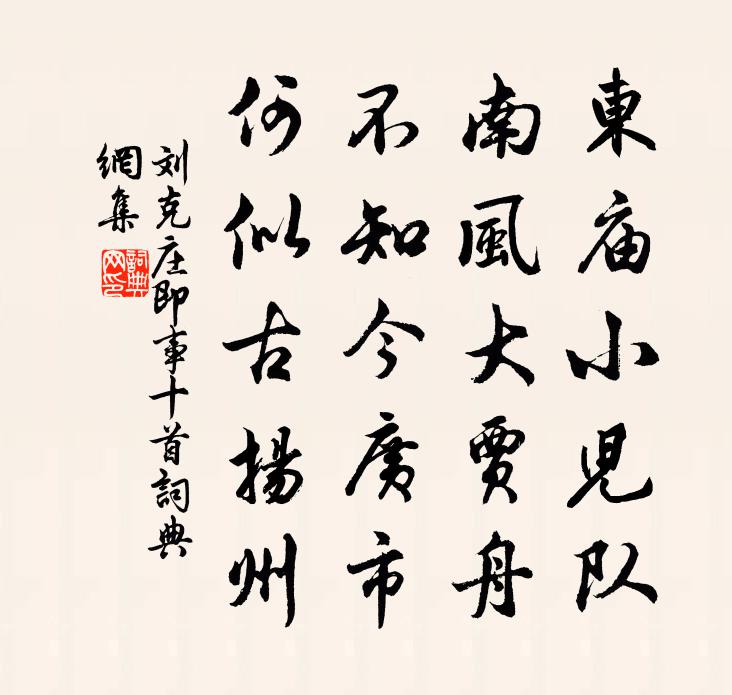 東庙小児队
南風大賈舟
不知今廣市
何似古揚州
刘克庄即事十首詞典
網集
詞典
网印